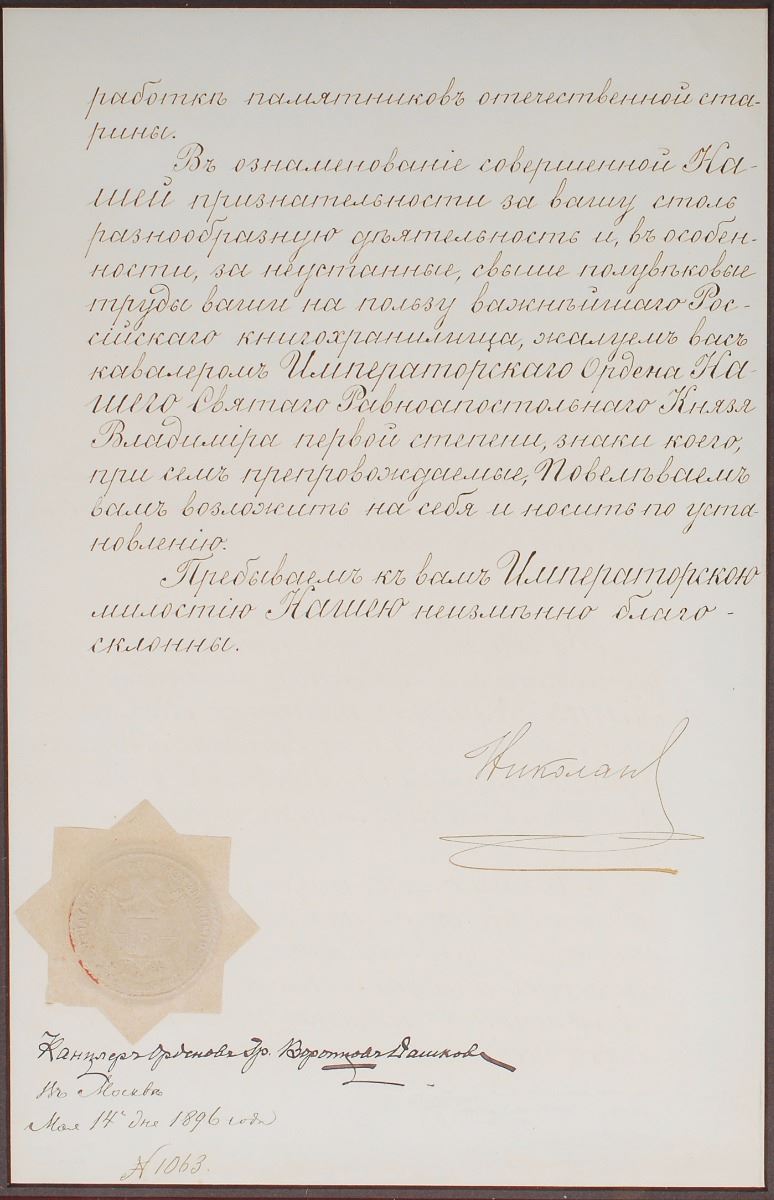 работкѣ памятниковъ отечественной ста-
рины.
Въ ознаменованіе совершенной На-
шей признательности за вашу столь
разнообразную дѣятельность и, въ особен-
ности, за неустанные, свыше полувѣковые
труды ваши на пользу важнѣйшаго Рос-
сійскаго книгохранилища, жалуемъ васъ
кавалеромъ Императорскаго Ордена На-
шего Святаго Равноапостольнаго Князя
Владиміра первой степени, знаки коего,
при семъ препровождаемые, Повелѣваемъ
вамъ возложить на себя и носить по уста-
новленію.
Пребываемъ къ вамъ Императорскою
милостію Нашею неизмѣнно благо-
склонны.
Николай
Канцлеръ Орденовъ Гр. Воронцовъ Дашковъ
Въ Москвѣ
Мая 14 дне 1896 года
N 1063.